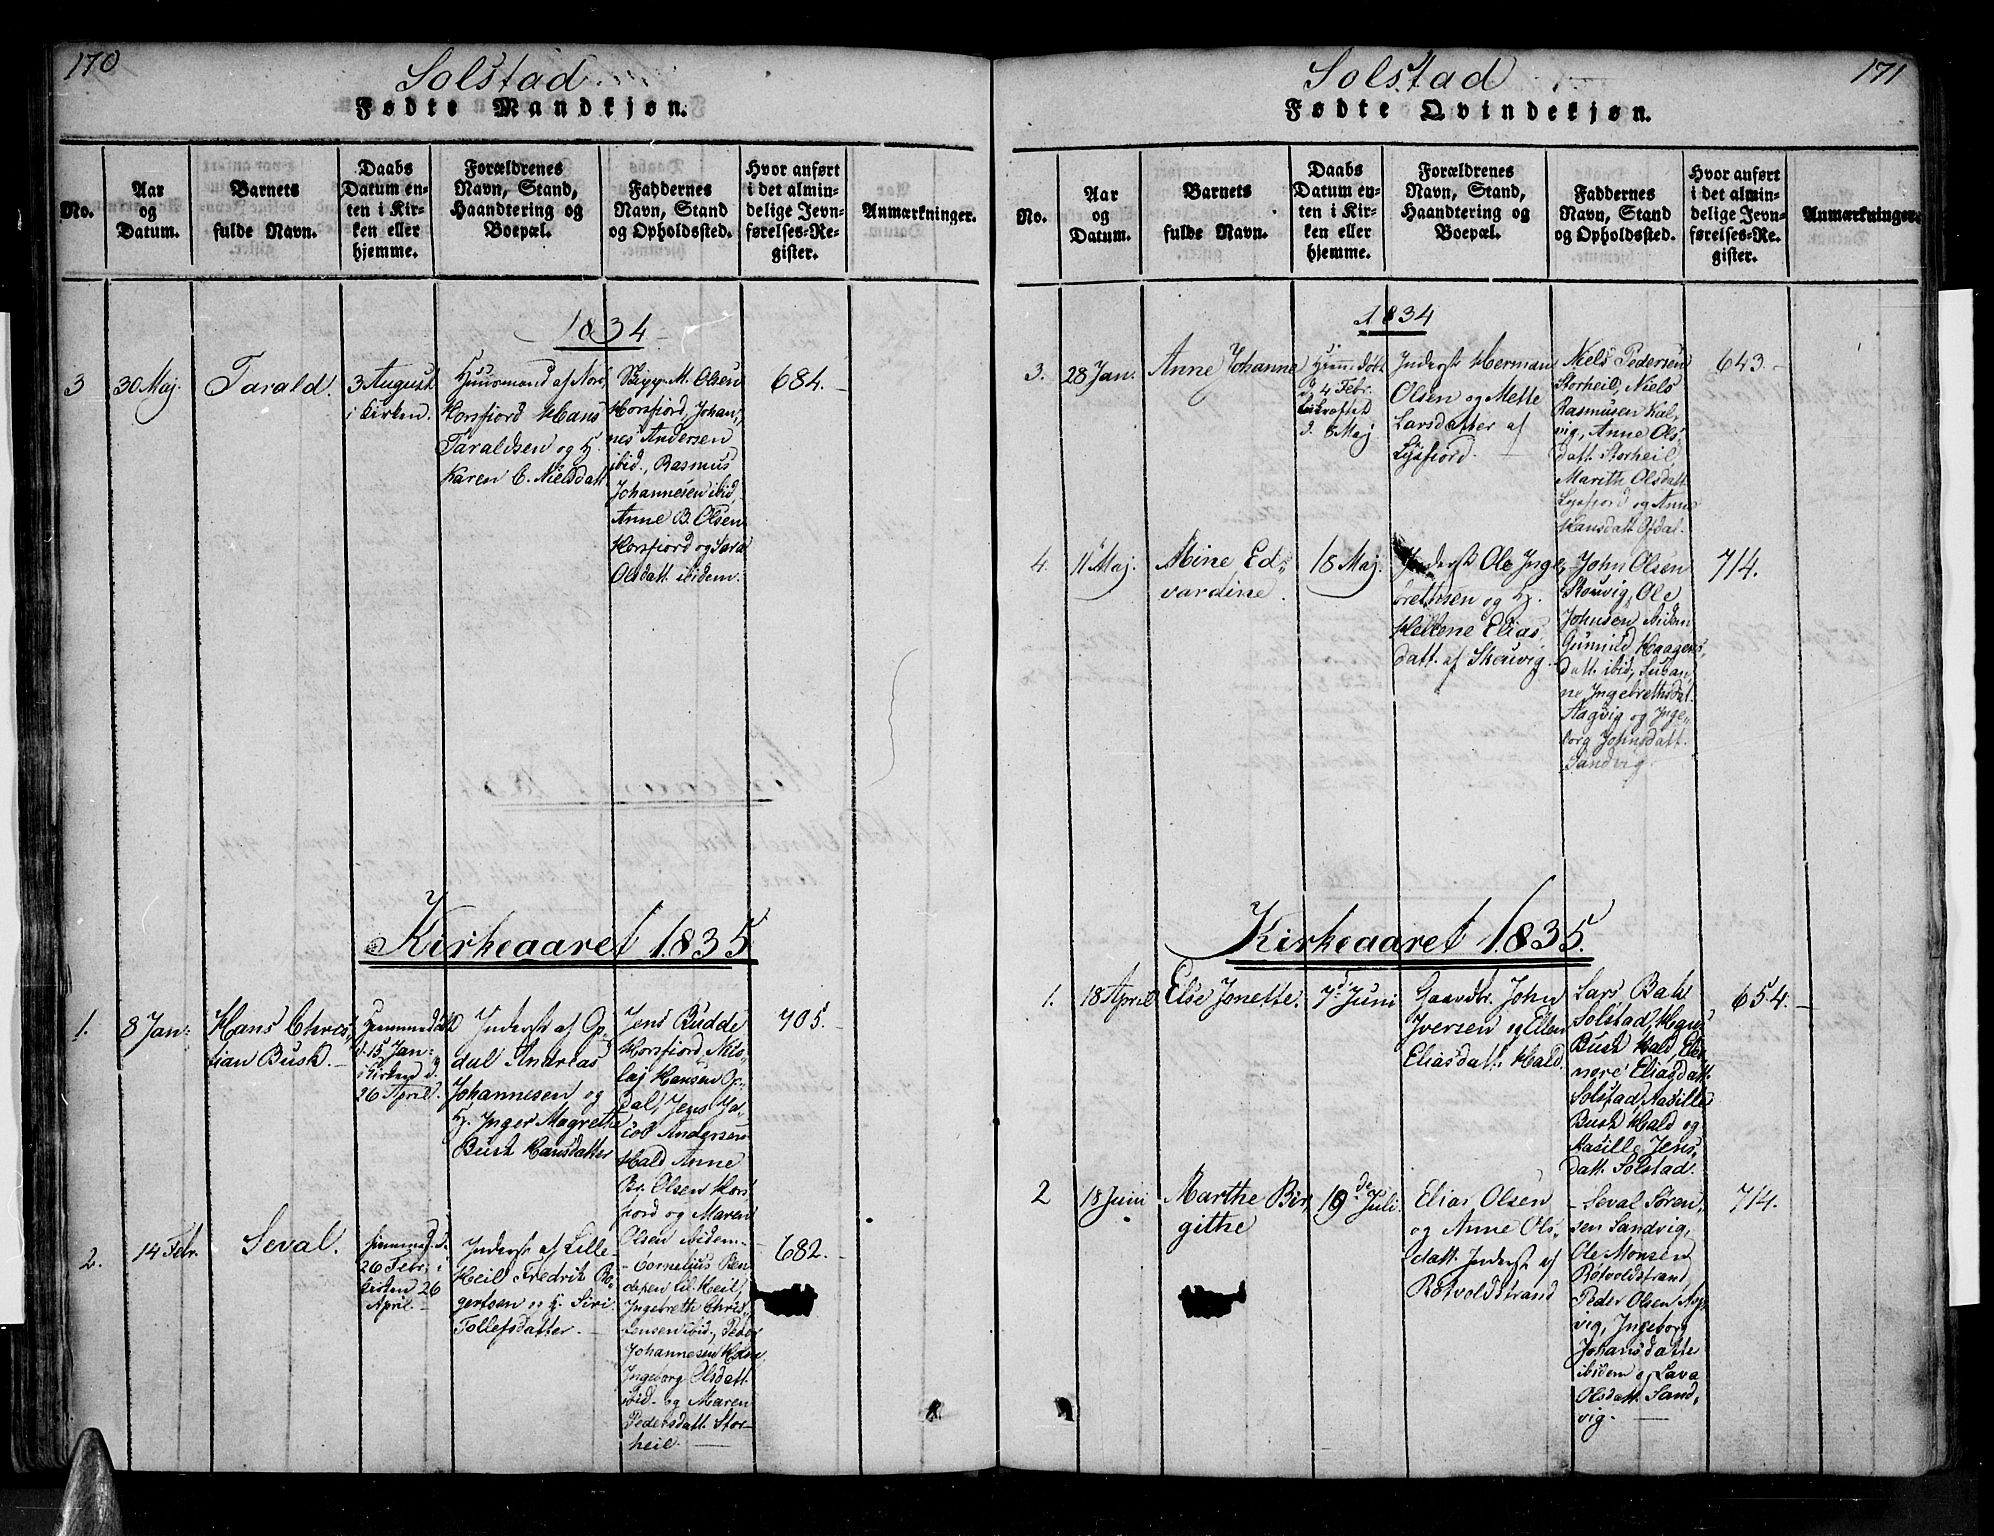 170
Solstad.
Fødte Mandkjøn.
No.
Aar
og
Datum.
Barnets
fulde Navn.
Daabs
Datum en-
ten i Kir-
ken eller
hjemme.
Forældrenes
Navn, Stand,
Haandtering og
Boepæl.
Faddernes
Navn, Stand
og Opholdssted.
Hvor anført
i det almin-
delige Jevn-
førelses-Re-
gister.
Anmærkninger.
1834
3
30 Maj.
Tarald.
3 August
i Kirken.
Huusmand af Nord
Horsfjord Hans
Taraldsen og H.
Karen C. Nielsdatt
Skipp M. Olsen
Horsfjord, Johan-
nes Andersen
ibid., Rasmus
Johannesen ibid,
Anne B. Olsen
Horsfjord og Sara
Olsdatt. ibidem.
684.
Kirkeaaret 1835
1.
8 Jan:
Hans Chris-
tian Bush.
Hjemmedøbt
d. 15 Jan:
i Kirken d.
26 April.
Inderst af Op-
dal Andreas
Johannesen og
H. Inger Magrethe
Bush Hansdatter
Jens Budde
Horsfjord, Nils-
laj Hansen Op-
dal, Jens Ja-
cob Andersen
Hald Anne
Br. Olsen Hors-
fjord og Maren
Olsen ibidem.
705.
2.
14 Febr.
Seval.
26 Febr. i
Kirken 26
April
Inderst af Lille-
Heil Fredrik Bo-
gertsen og H. Siri
Tollefsdatter.
Cornelius Ben
depen lil. Heil,
Ingebreth Chris-
tensen ibid., Peder
Johannesen
Ingeborg Olsdatt.
ibid. og Maren
Pedersdatt. Stor-
heil.
682.
171
Solstad
Fødte Qvindekjøn.
No.
Aar
og
Datum.
Barnets
fulde Navn.
Daabs
Datum en-
ten i Kir-
ken eller
hjemme.
Forældrenes
Navn, Stand,
Haandtering og
Boepæl.
Faddernes
Navn, Stand
og Opholdssted.
Hvor anført
i det almin-
delige Jevn-
førelses-Re-
gister.
Anmærkninger.
1834
3.
28 Jan.
Anne Johanne
Hjemmedøbt
d. 4 Febr.
d. 8 Maj
Inderst Herman
Olsen og Mette
Larsdatter af
Lysfjord.
Niels Pedersen
Storheil, Niels
Rasmusen Kal-
vig, Anne Ols-
datt. Storheil,
Marith Olsdatt.
Lysfjord og Anne
Hansdatt. Opdal.
643.
4.
11 Maj.
Mine Ed-
vardine.
18 Maj.
Inderst Ole Inge-
brethsen og H.
Hellene Elias-
datt. af Skouvig.
John Olsen
Skouvig, Ole
Johnsen ibidem
Gunnild Haagens-
datt. ibid, Susan-
ne Ingebrethsdat.
Aagvig og Inge-
borg Johnsdatt.
Sandvig.
714.
Kirkeaaret 1835.
1.
18 April
Else Jonette.
7de Juni
Gaardbr. John
Iversen og Ellen
Eliasdatt. Hald.
Lars Bah
Solstad, Hans
Bush Hald, Ele-
nore Eliasdatt.
Solstad, Aasille
Bush Hald og
Aasille Jens-
datt. Solstad.
654.
2
18 Juni
Marthe Bir-
githe
19de Juli.
Elias Olsen
og Anne Ols-
datt. Inderst af
Røtvoldstrand
Seval Søren-
sen Sandvig,
Ole Monsen
Røtvoldstrand
Peder Olsen
vig, Ingeborg
Johansdatte
ibidem og Lava
Olsdatt. Sand-
vig.
714.